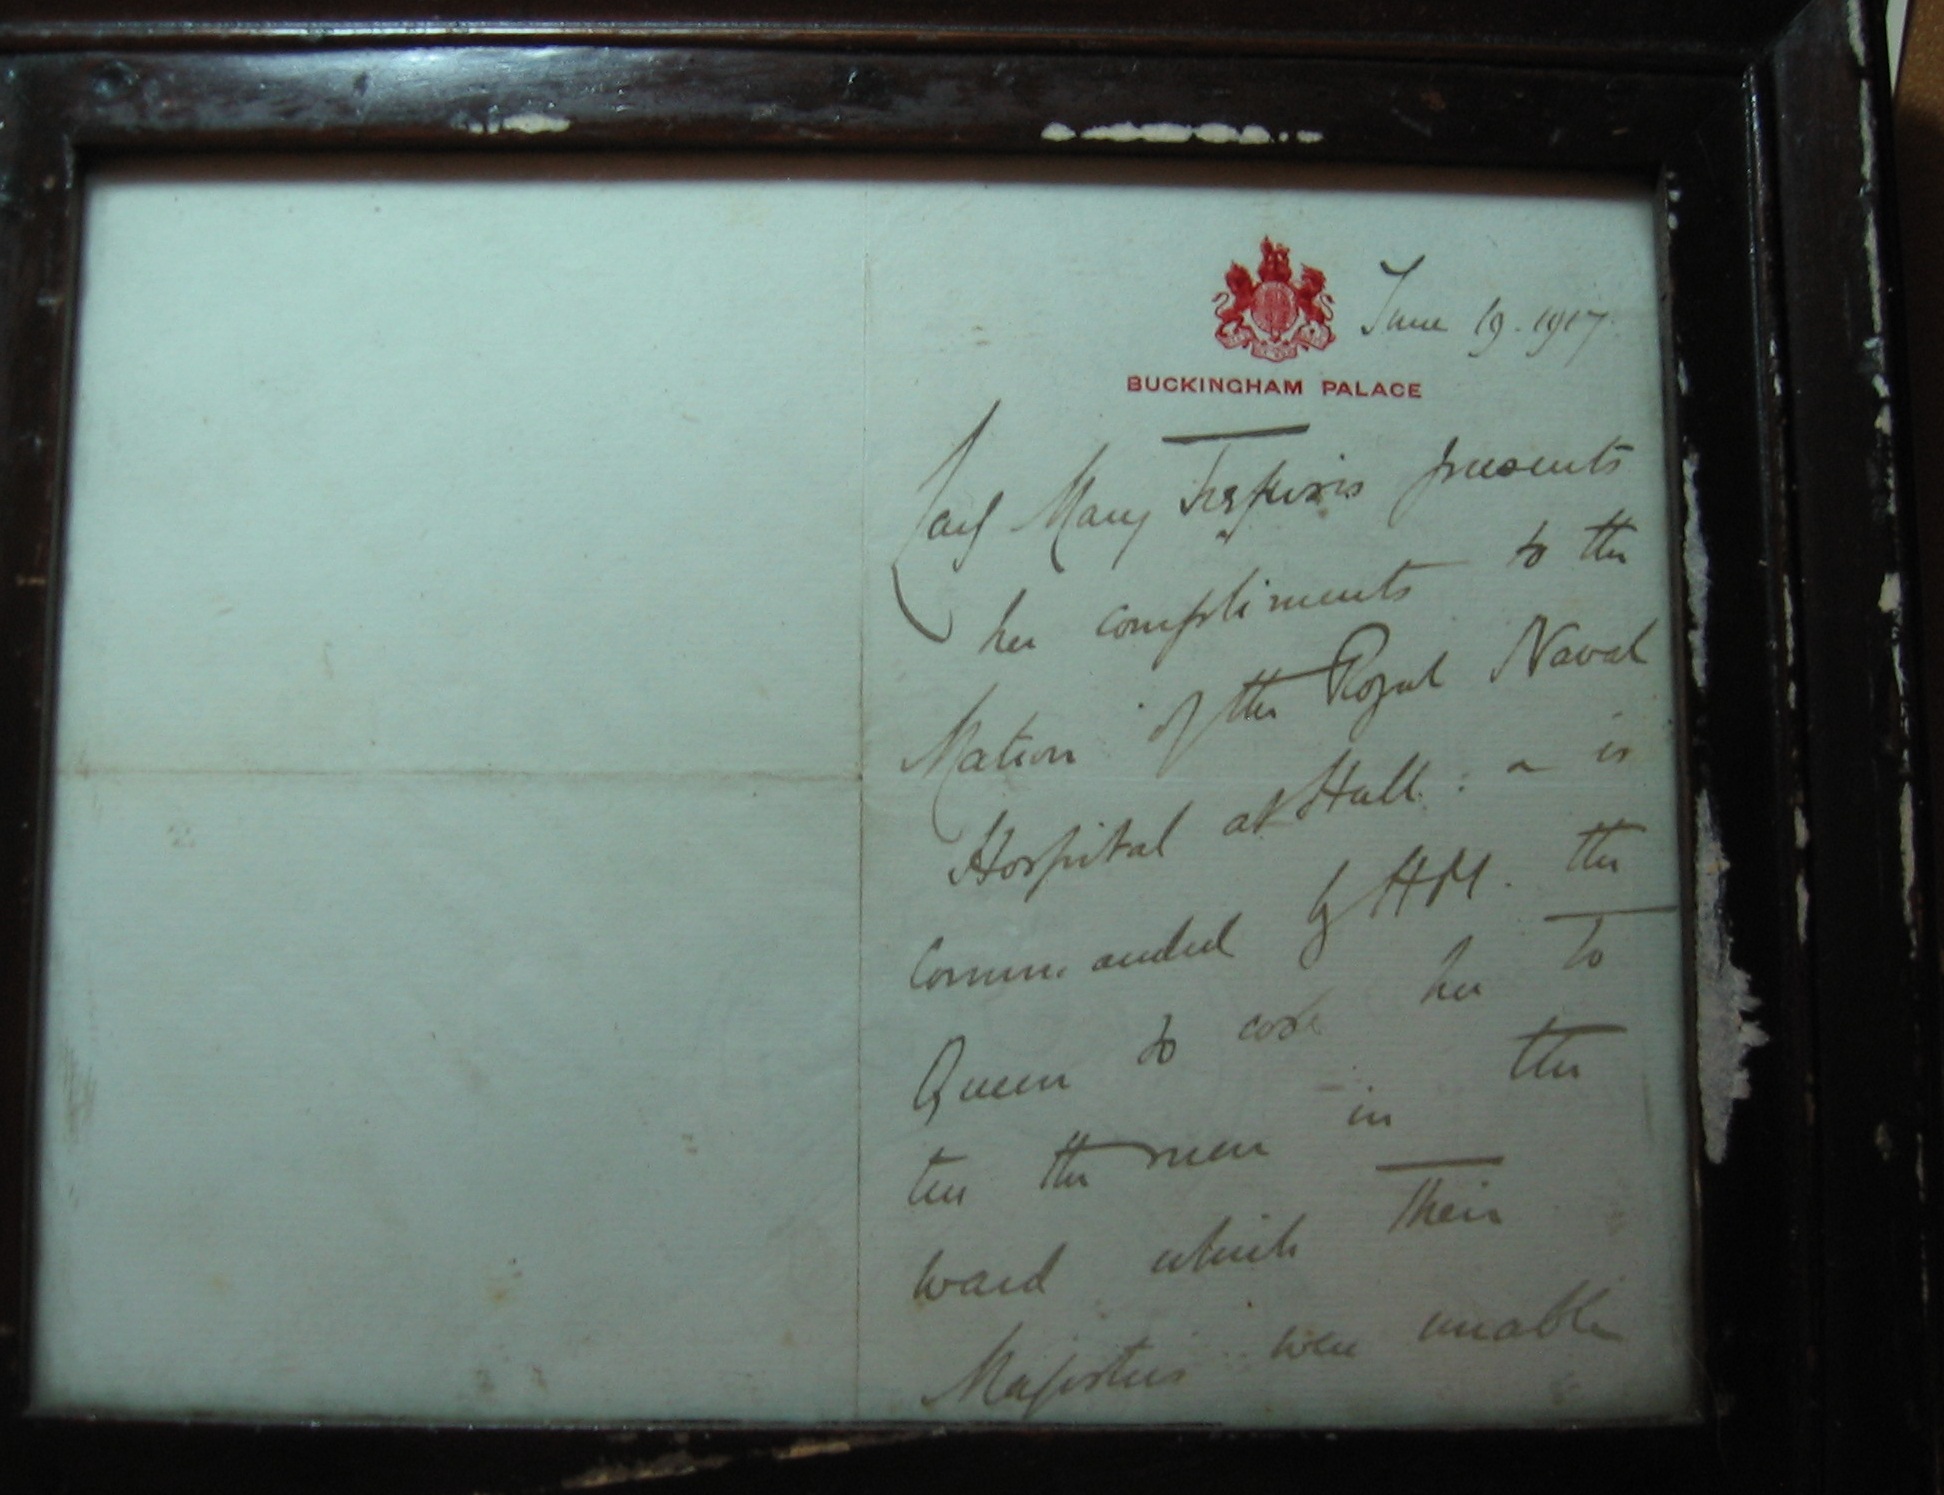 June 19. 1917.
BUCKINGHAM PALACE
Lady Mary Trefusis presents
her compliments to the
Matron of the Royal Naval
Hospital at Hull : & is
commanded by H.M. the
Queen to ask her to
tell the men in the
ward which Their
Majesties were unable